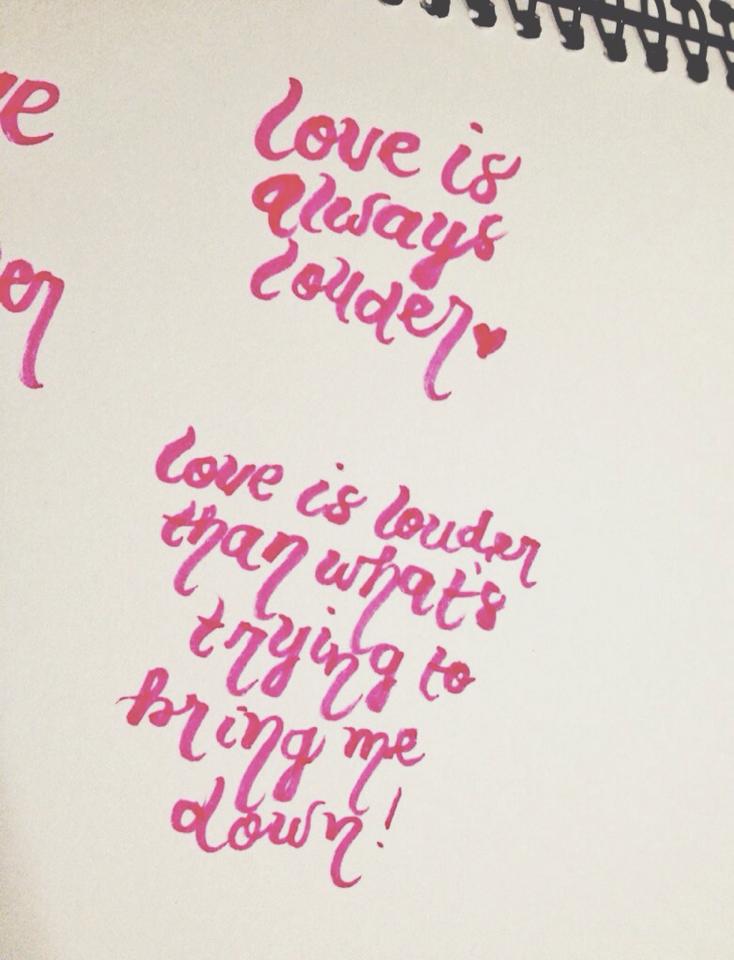 love is
always
louder♥
love is louder
than what's
trying to
bring me
down!